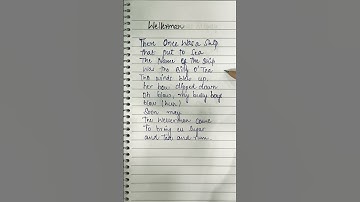 Wellerman
There Once Was a Ship
that put to Sea
The Name of The Ship
was the Billy O'Tea
The winds blew up,
her bow dipped down
Oh blow, my bully boys
blow (huh)
Soon may
The Wellerman come
To bring us Sugar
and Tea and rum